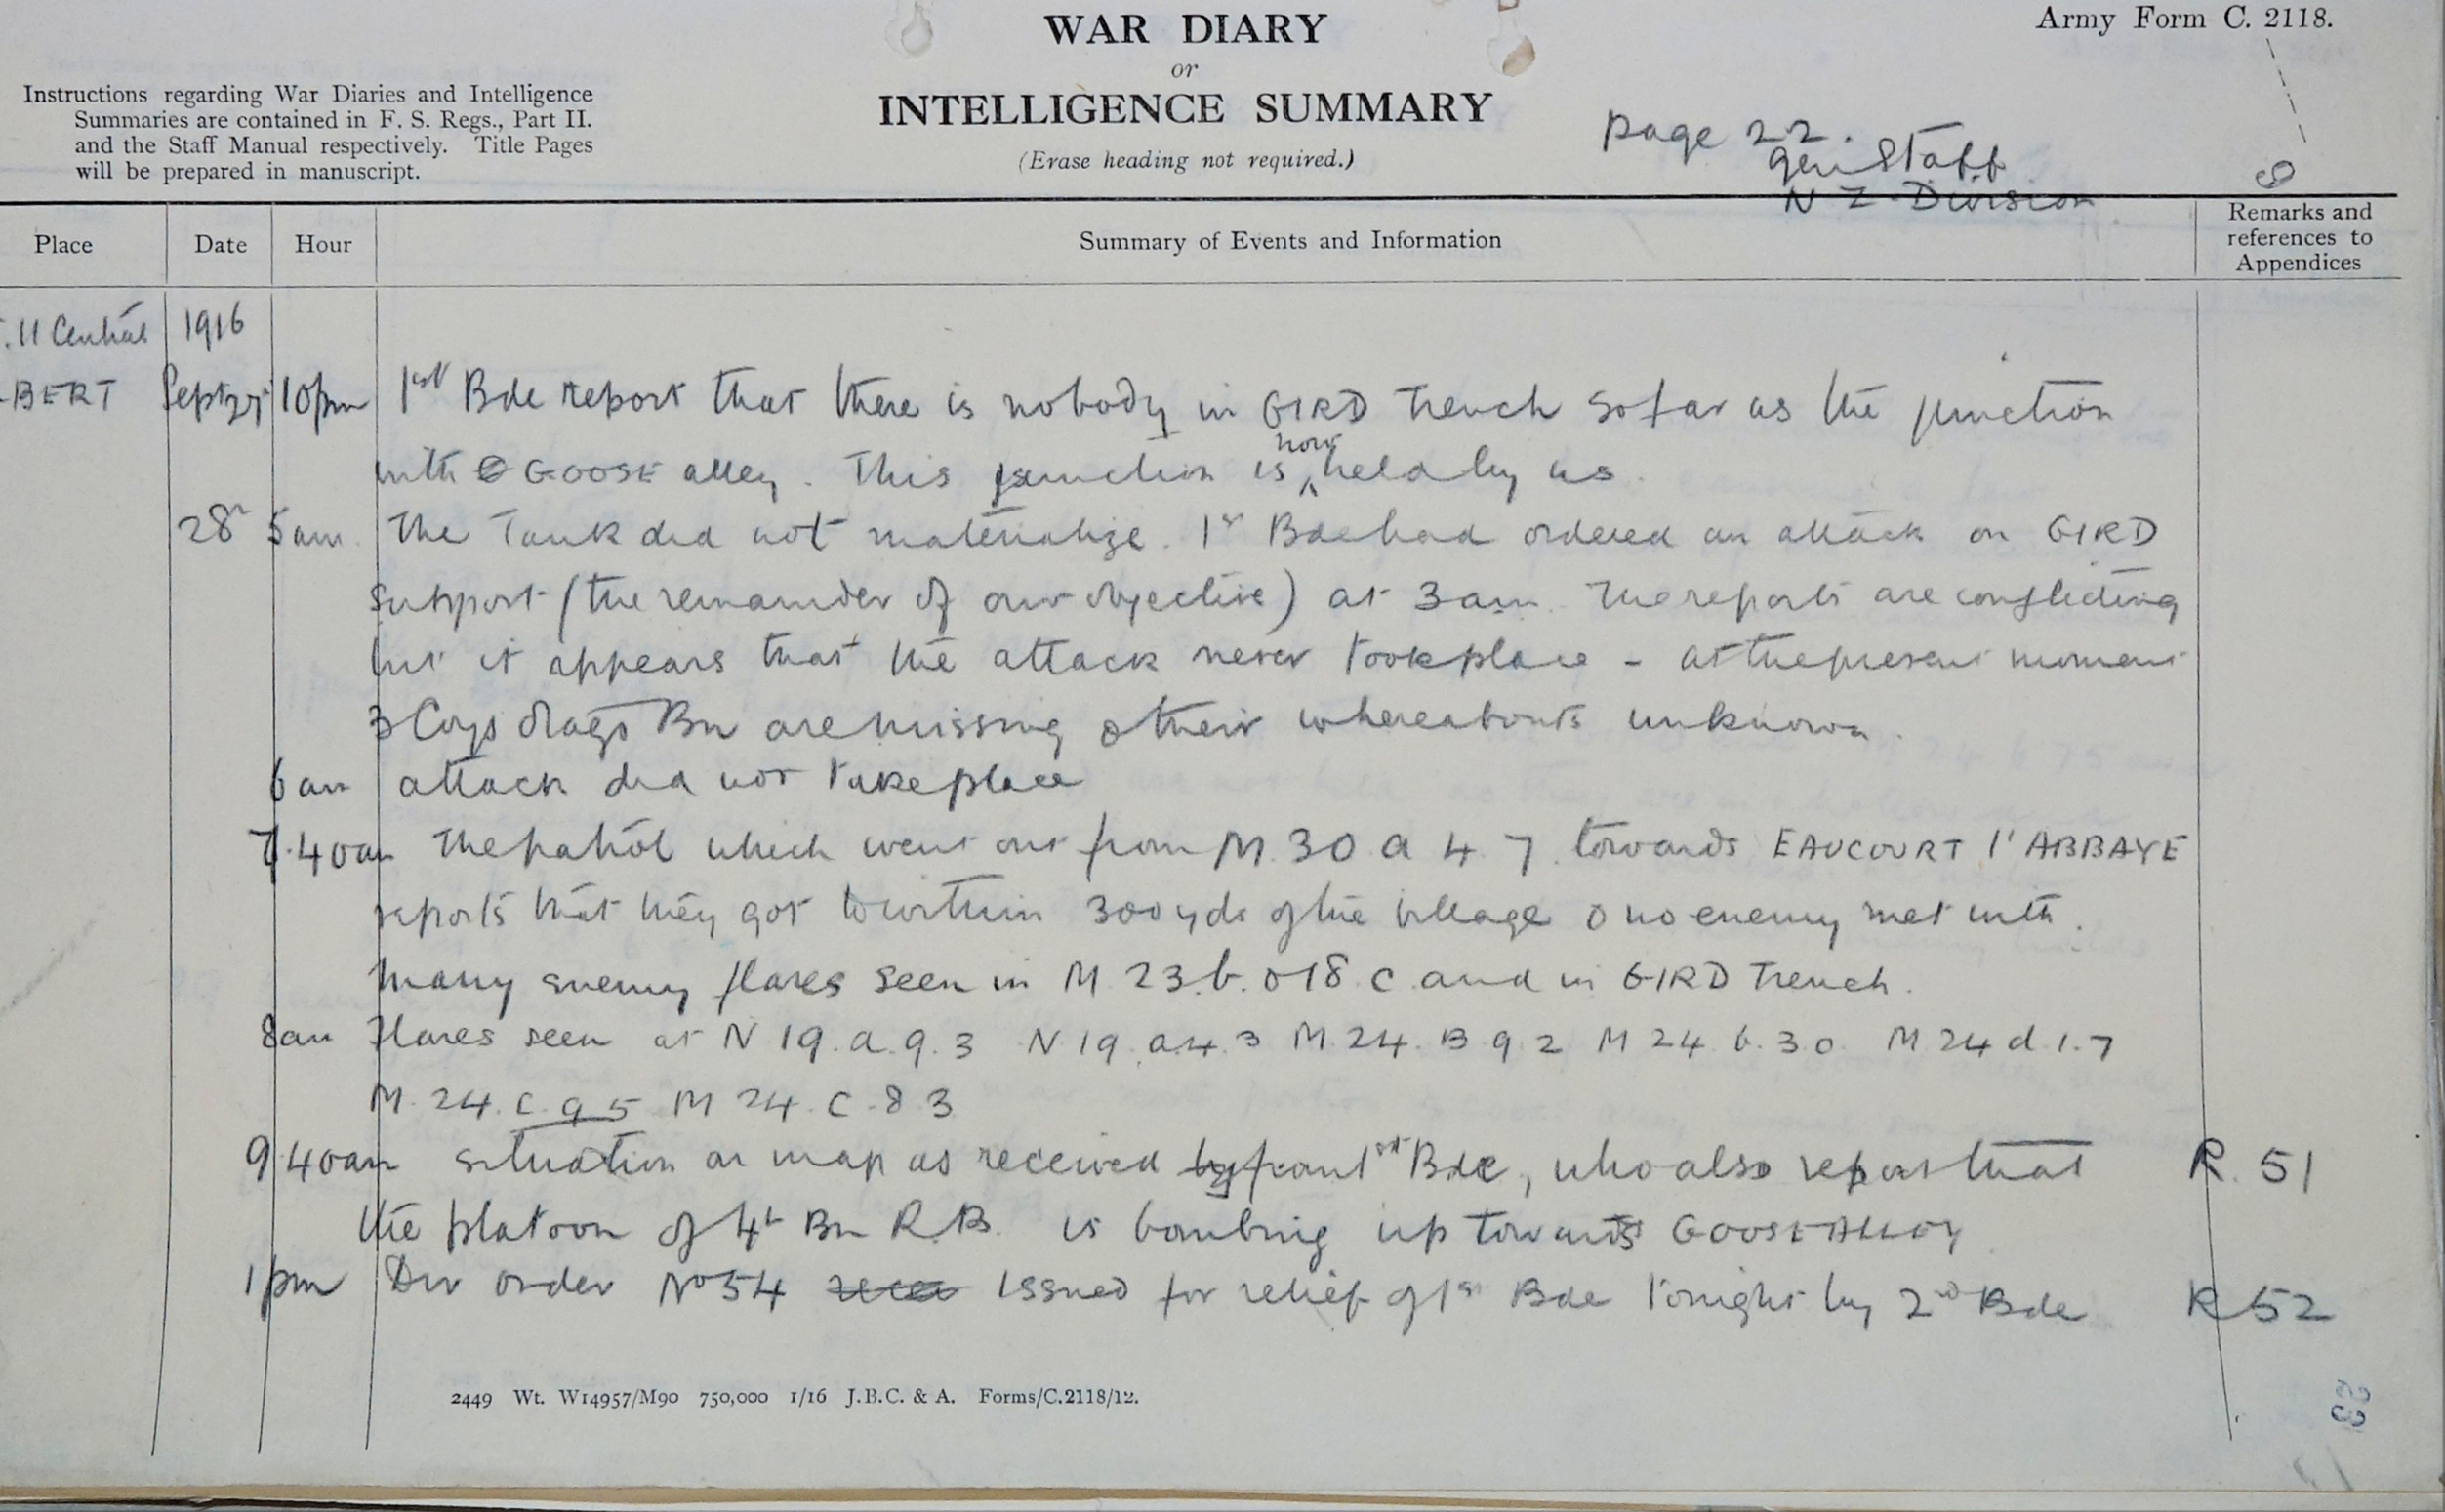 WAR DIARY
or
INTELLIGENCE SUMMARY
(Erase heading not required.)
Army Form C. 2118.
Instructions regarding War Diaries and Intelligence
Summaries are contained in F. S. Regs., Part II.
and the Staff Manual respectively. Title Pages
will be prepared in manuscript.
page 22.
Gen Staff
N Z Division
Place Date Hour Summary of Events and Information Remarks and references to Appendices
.11 Central 1916
BERT Sept 27 10pm 1st Bde report that there is nobody in GIRD Trench so far as the junction
with GOOSE alley. This junction is now held by us.
28 5am. The Tank did not materialize. 1st Bde had ordered an attack on GIRD
support (the remainder of our objective) at 3am. The reports are conflicting
but it appears that the attack never took place - at the present moment
3 Coys Bn are missing & their whereabouts unknown.
6am attack did not take place
7.40am The patrol which went out from M 30 a 4 7. towards EAUCOURT l'ABBAYE
reports that they got to within 300 yds of the village & no enemy met with.
Many enemy flares seen in M 23.b. & 18 c and in GIRD Trench.
8am Flares seen at N 19.a.9.3 N 19.a.4.3 M.24.B 9 2 M 24 b.30 M 24 d 1.7
M.24.c.95 M 24.C.8 3
9.40am situation on map as received by from 1st Bde, who also report that R. 51
the platoon of 4th Bn R.B. is bombing up towards GOOSE ALLEY
1pm Div order No 54 issued for relief of 1st Bde tonight by 2nd Bde R 52
2449 Wt. W14957/M90 750,000 1/16 J.B.C. & A. Forms/C.2118/12.